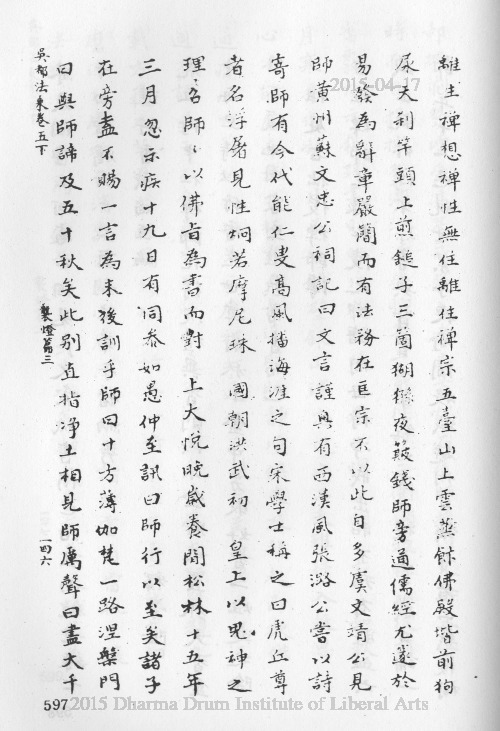 離生禪想禪性無住離住禪宗五臺山上雲蒸飰佛殿堦前狗
尿天刹竿頭上煎鎚子三箇猢猻夜簸錢師旁通儒經尤邃於
易發為辭章嚴闊而有法務在巨宗不以此自多虞文靖公見
師黄州蘇文忠公祠記曰文言謹與有西漢風張潞公嘗以詩
寄師有今代能仁叟髙風播海涯之句宋學士稱之曰虎丘尊
者名浮屠見性炯若摩尼珠 國朝洪武初 皇上以鬼神之
理召師師以佛旨為書而對 上大悅晚歲養閒松林十五年
三月忽示疾十九日有洞叅如愚仲至訊曰師行以至矣諸子
在旁盍不賜一言為末後訓乎師曰十方薄伽梵一路涅槃門
曰與師諦及五十秋矣此别直指净土相見師厲聲曰盡大千
吳都法乘卷五下
襲燈篇三
一四六
597
2015-04-17
2015 Dharma Drum Institute of Liberal Arts